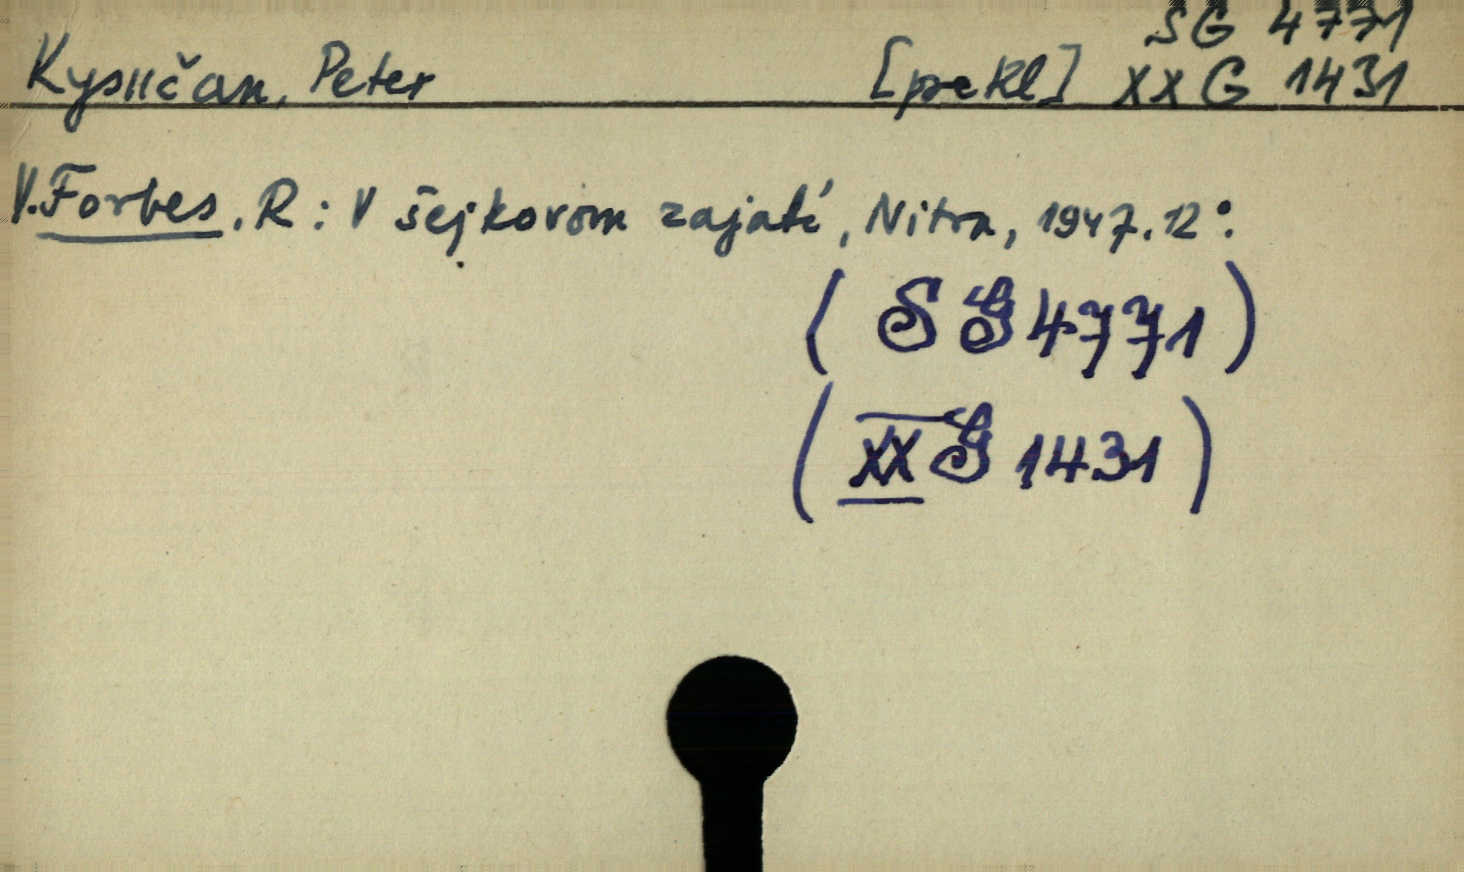 SG 4771
Kysučan, Peter [prekl] XXG 1431
V. Forbes, R: V šejkovom zajatí, Nitra, 1947. 12°.
(SG 4771)
(XXG 1431)